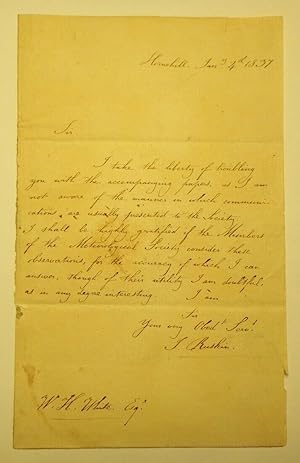 Hernehill Jan.y 4th 1837
Sir
I take the liberty of troubling
you with the accompanying papers, as I am
not aware of the manner in which communi-
cations, are usually presented to the Society
I shall be highly gratified if the Members
of the Meteorological Society consider these
observations, for the accuracy of which, I can
answer, though of their utility I am doubtful,
as in any degree interesting
I am
Sir
Your very Obedt Servt
J. Ruskin.
W. H. White Esqr